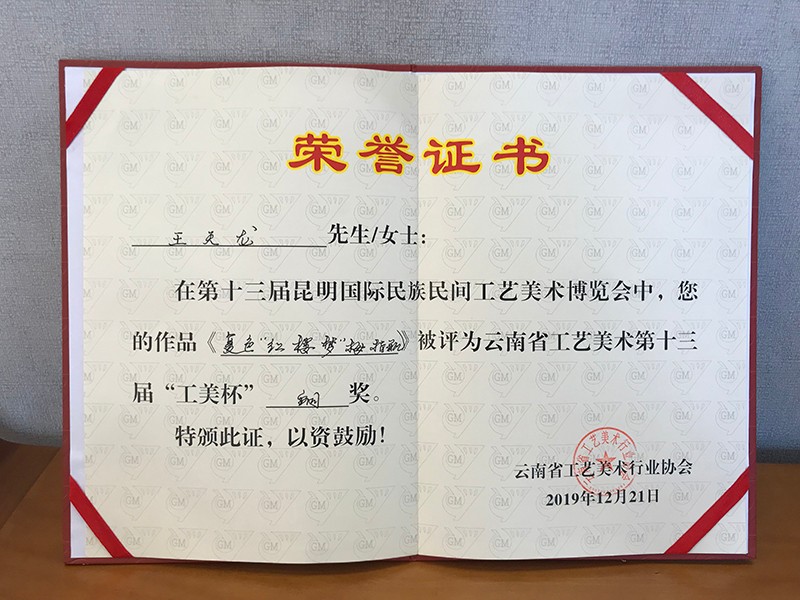 荣誉证书
王天龙 先生/女士：
在第十三届昆明国际民族民间工艺美术博览会中，您
的作品《复色“红楼梦”梅瓶》被评为云南省工艺美术第十三
届“工美杯” 铜 奖。
特颁此证，以资鼓励！
云南省工艺美术行业协会
2019年12月21日
GM